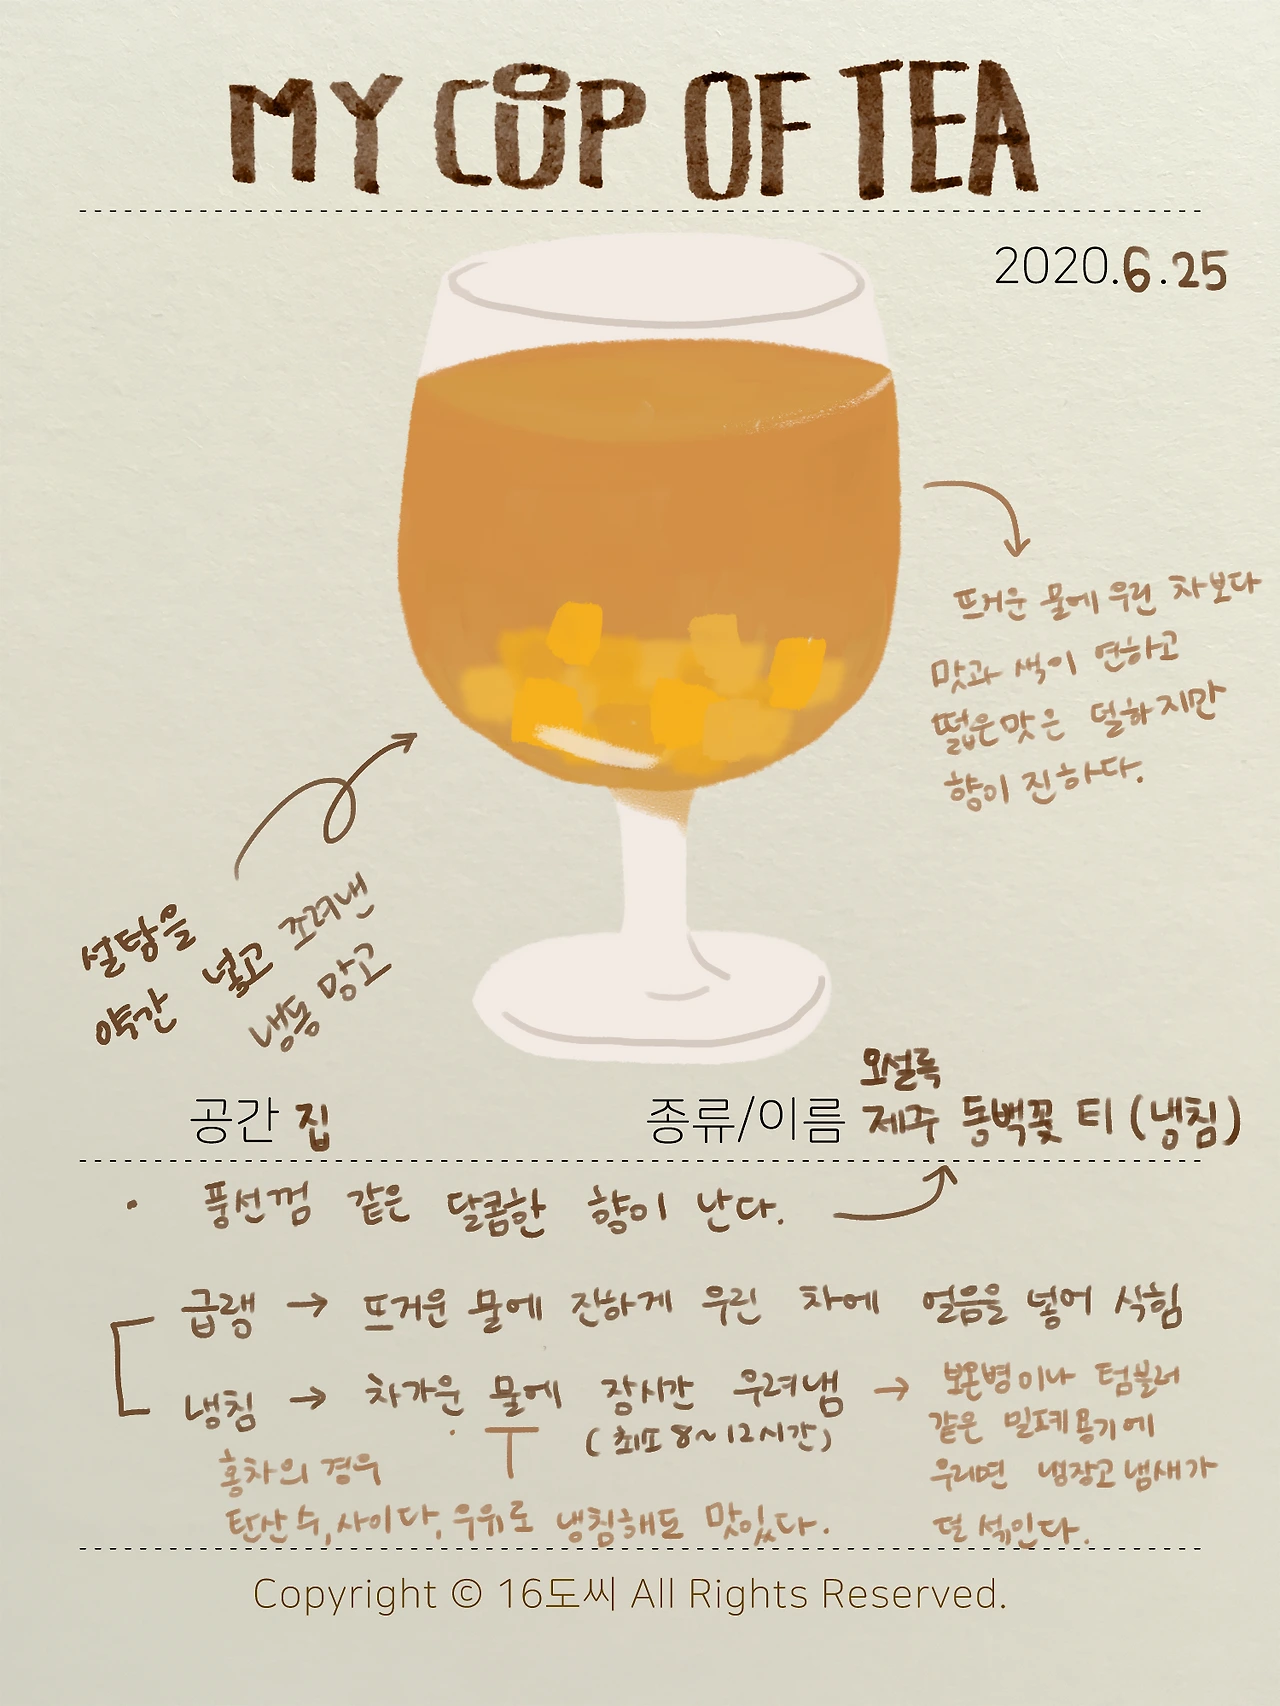 MY CUP OF TEA
2020.6.25
뜨거운 물에 우린 차보다
맛과 색이 연하고
떫은맛은 덜하지만
향이 진하다.
설탕을
약간 넣고 조려낸
냉동 망고
공간 집
오설록
종류/이름 제주 동백꽃 티 (냉침)
· 풍선껌 같은 달콤한 향이 난다.
급랭 → 뜨거운 물에 진하게 우린 차에 얼음을 넣어 식힘
냉침 → 차가운 물에 장시간 우려냄 →
(최또 8~12시간)
보온병이나 텀블러
같은 밀폐용기에
우리면 냉장고 냄새가
덜 섞인다.
홍차의 경우
탄산수, 사이다, 우유로 냉침해도 맛있다.
Copyright © 16도씨 All Rights Reserved.